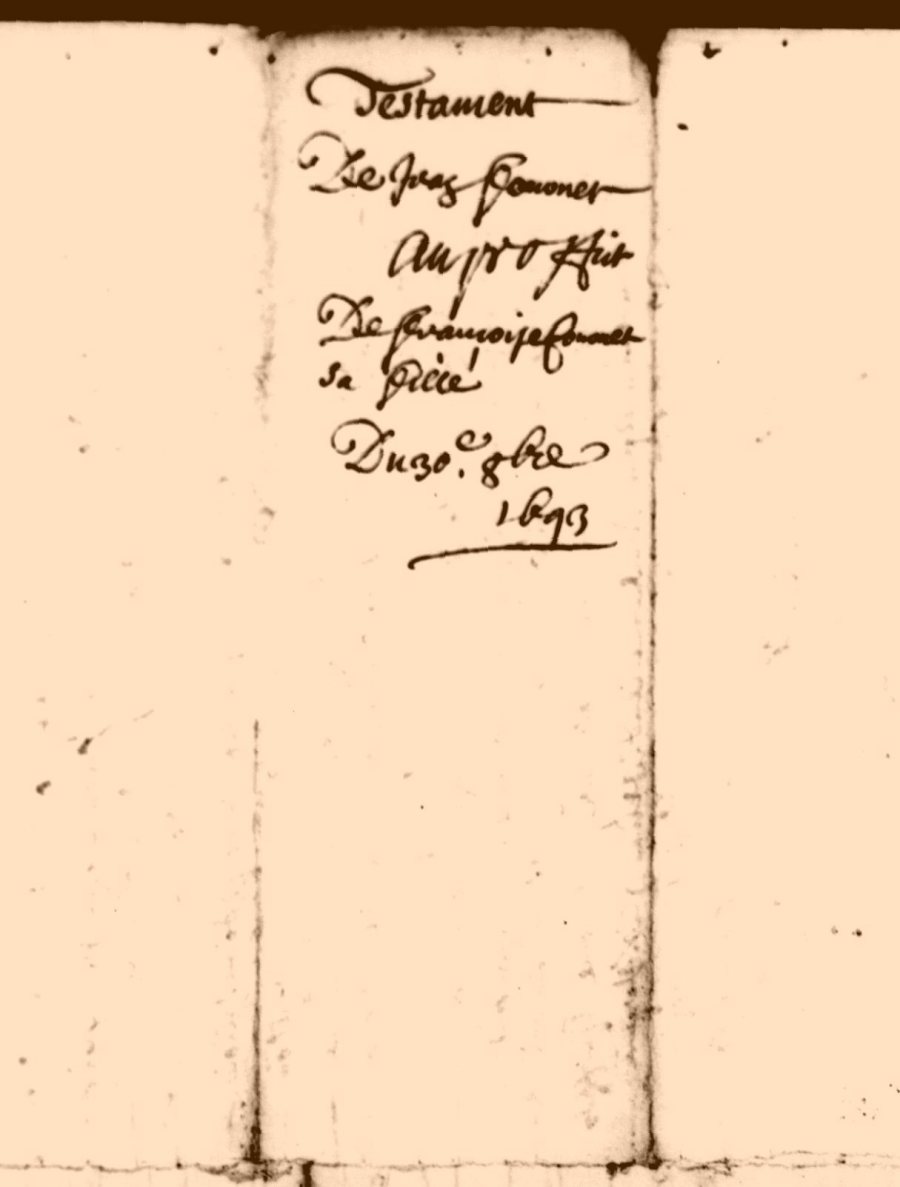 Testament
De Couonet
Au proffit
De francoise Couonet
sa fille
Du 30e. 8bre
1693